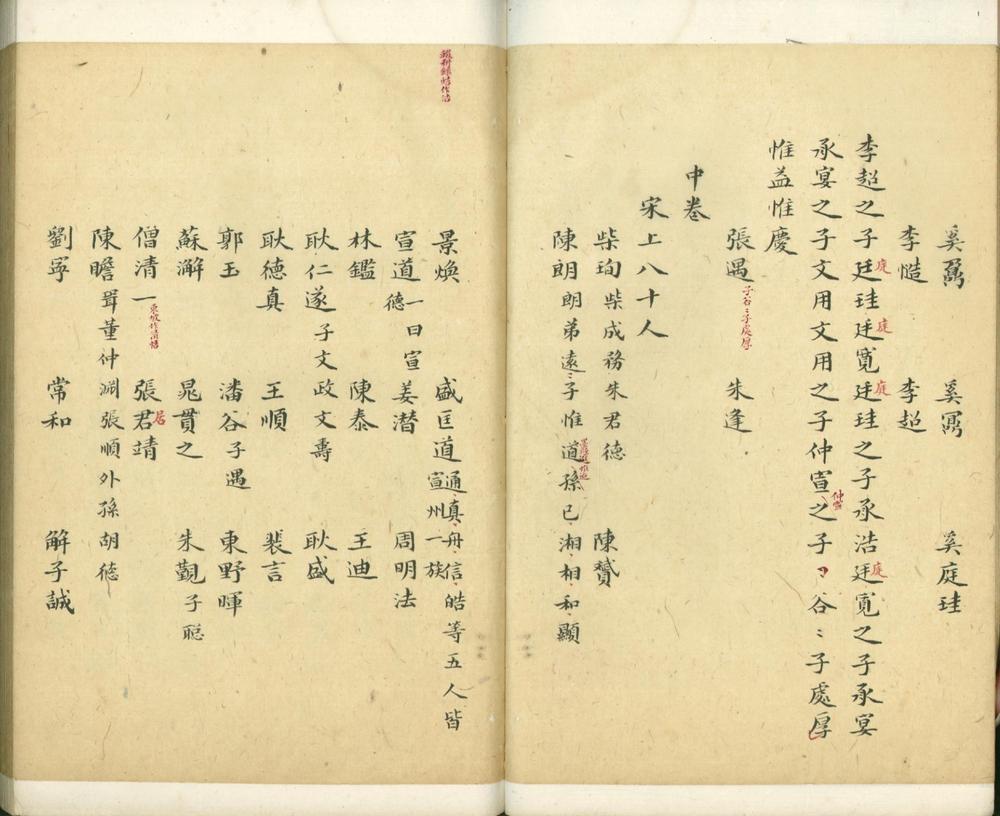 奚鼐 奚鼏 奚庭珪
李慥 李超
李超之子廷珪廷寬廷珪之子承浩廷寬之子承宴
庭 庭 庭 庭
承宴之子文用文用之子仲宣之子谷〻子處厚
仲宣
惟益惟慶
張遇 朱逢
子谷〻子處厚
中卷
宋上八十人
柴珣柴成務朱君德 陳贇
陳朗朗弟遠〻子惟道孫已湘相和顯
景煥 盛匡道通真舟信皓等五人皆宣州一族
宣道一曰宣德 姜潛 周明法
林鑑 陳泰 王迪
耿仁遂子文政文壽 耿盛
耿德真 王順 裴言
郭玉 潘谷子遇 東野暉
蘇澥 晁貫之 朱覲子聡
僧清一 張君靖
東坡作清悟
居
陳瞻胥董仲淵張順外孫胡德
劉寧 常和 解子誠